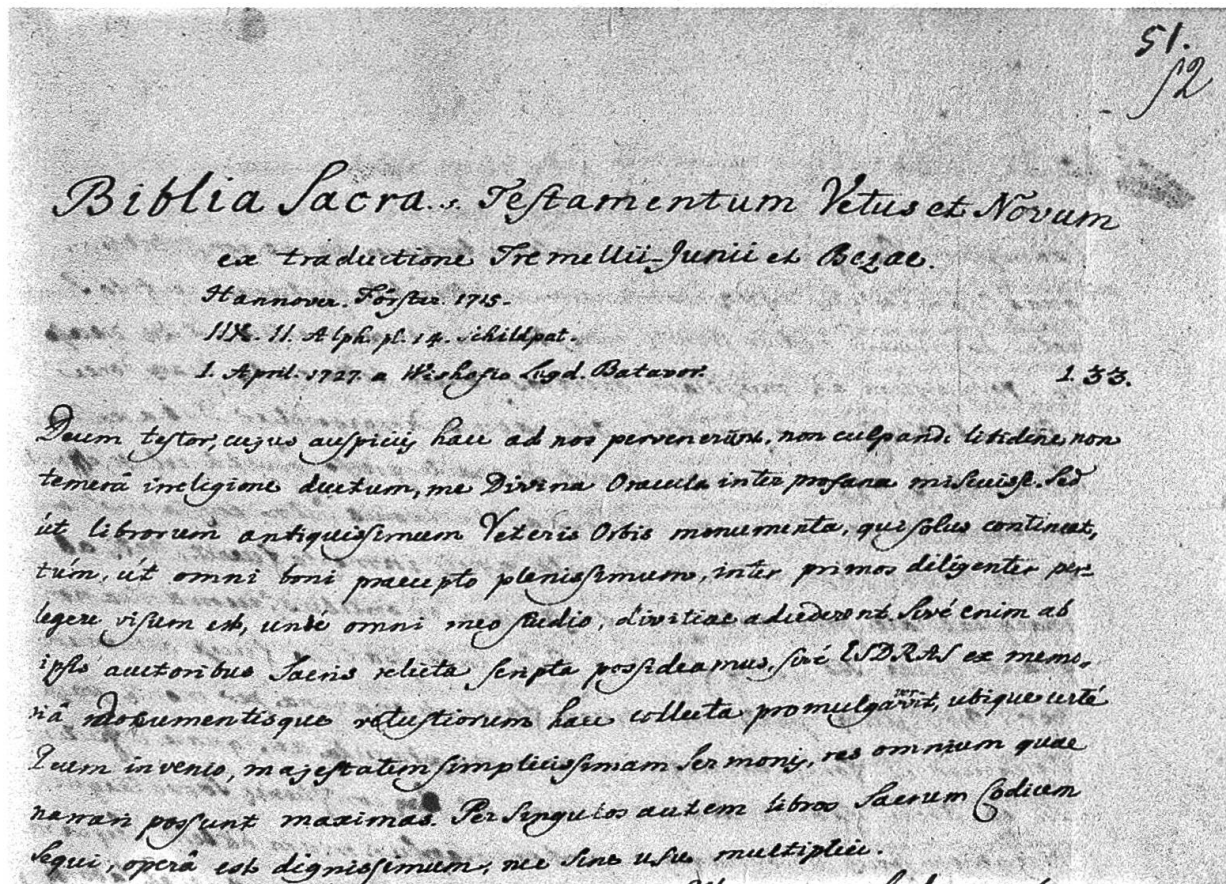 51.
52
Biblia Sacra. s. Testamentum Vetus et Novum
ex traductione Tremellii-Junii et Bezae.
Hannover. Förster. 1715.
Alph. pl. 14. schildpat.
1. April. 1727. a Wishofio Lugd. Batavor. 1. 33.
Deum testor, cujus auspiciis haec ad nos pervenerunt, non culpandâ libidine, non
temerâ irreligione ductum, me Divina Oracula inter profana miscuisse. Sed
út librorum antiquissimum Veteris Orbis monumenta, qui solus contineat,
túm, út omni boni praecepto plenissimum, inter primos diligenter per-
legere visum est, unde omni meo studio, divitiae accederent. Sivé enim ab
ipsis auctoribus Sacris relicta scripta possideamus, sivé ESDRAS ex memo-
riâ monumentisque vetustiorum haec collecta promulgaverit, ubique certé
Deum invenio, majestatem simplicissimam sermonis, res omnium quae
narrari possunt maximas. Per singulos autem libros Sacrum Codicem
sequi, operâ est dignissimum, nec sine usu multiplici.